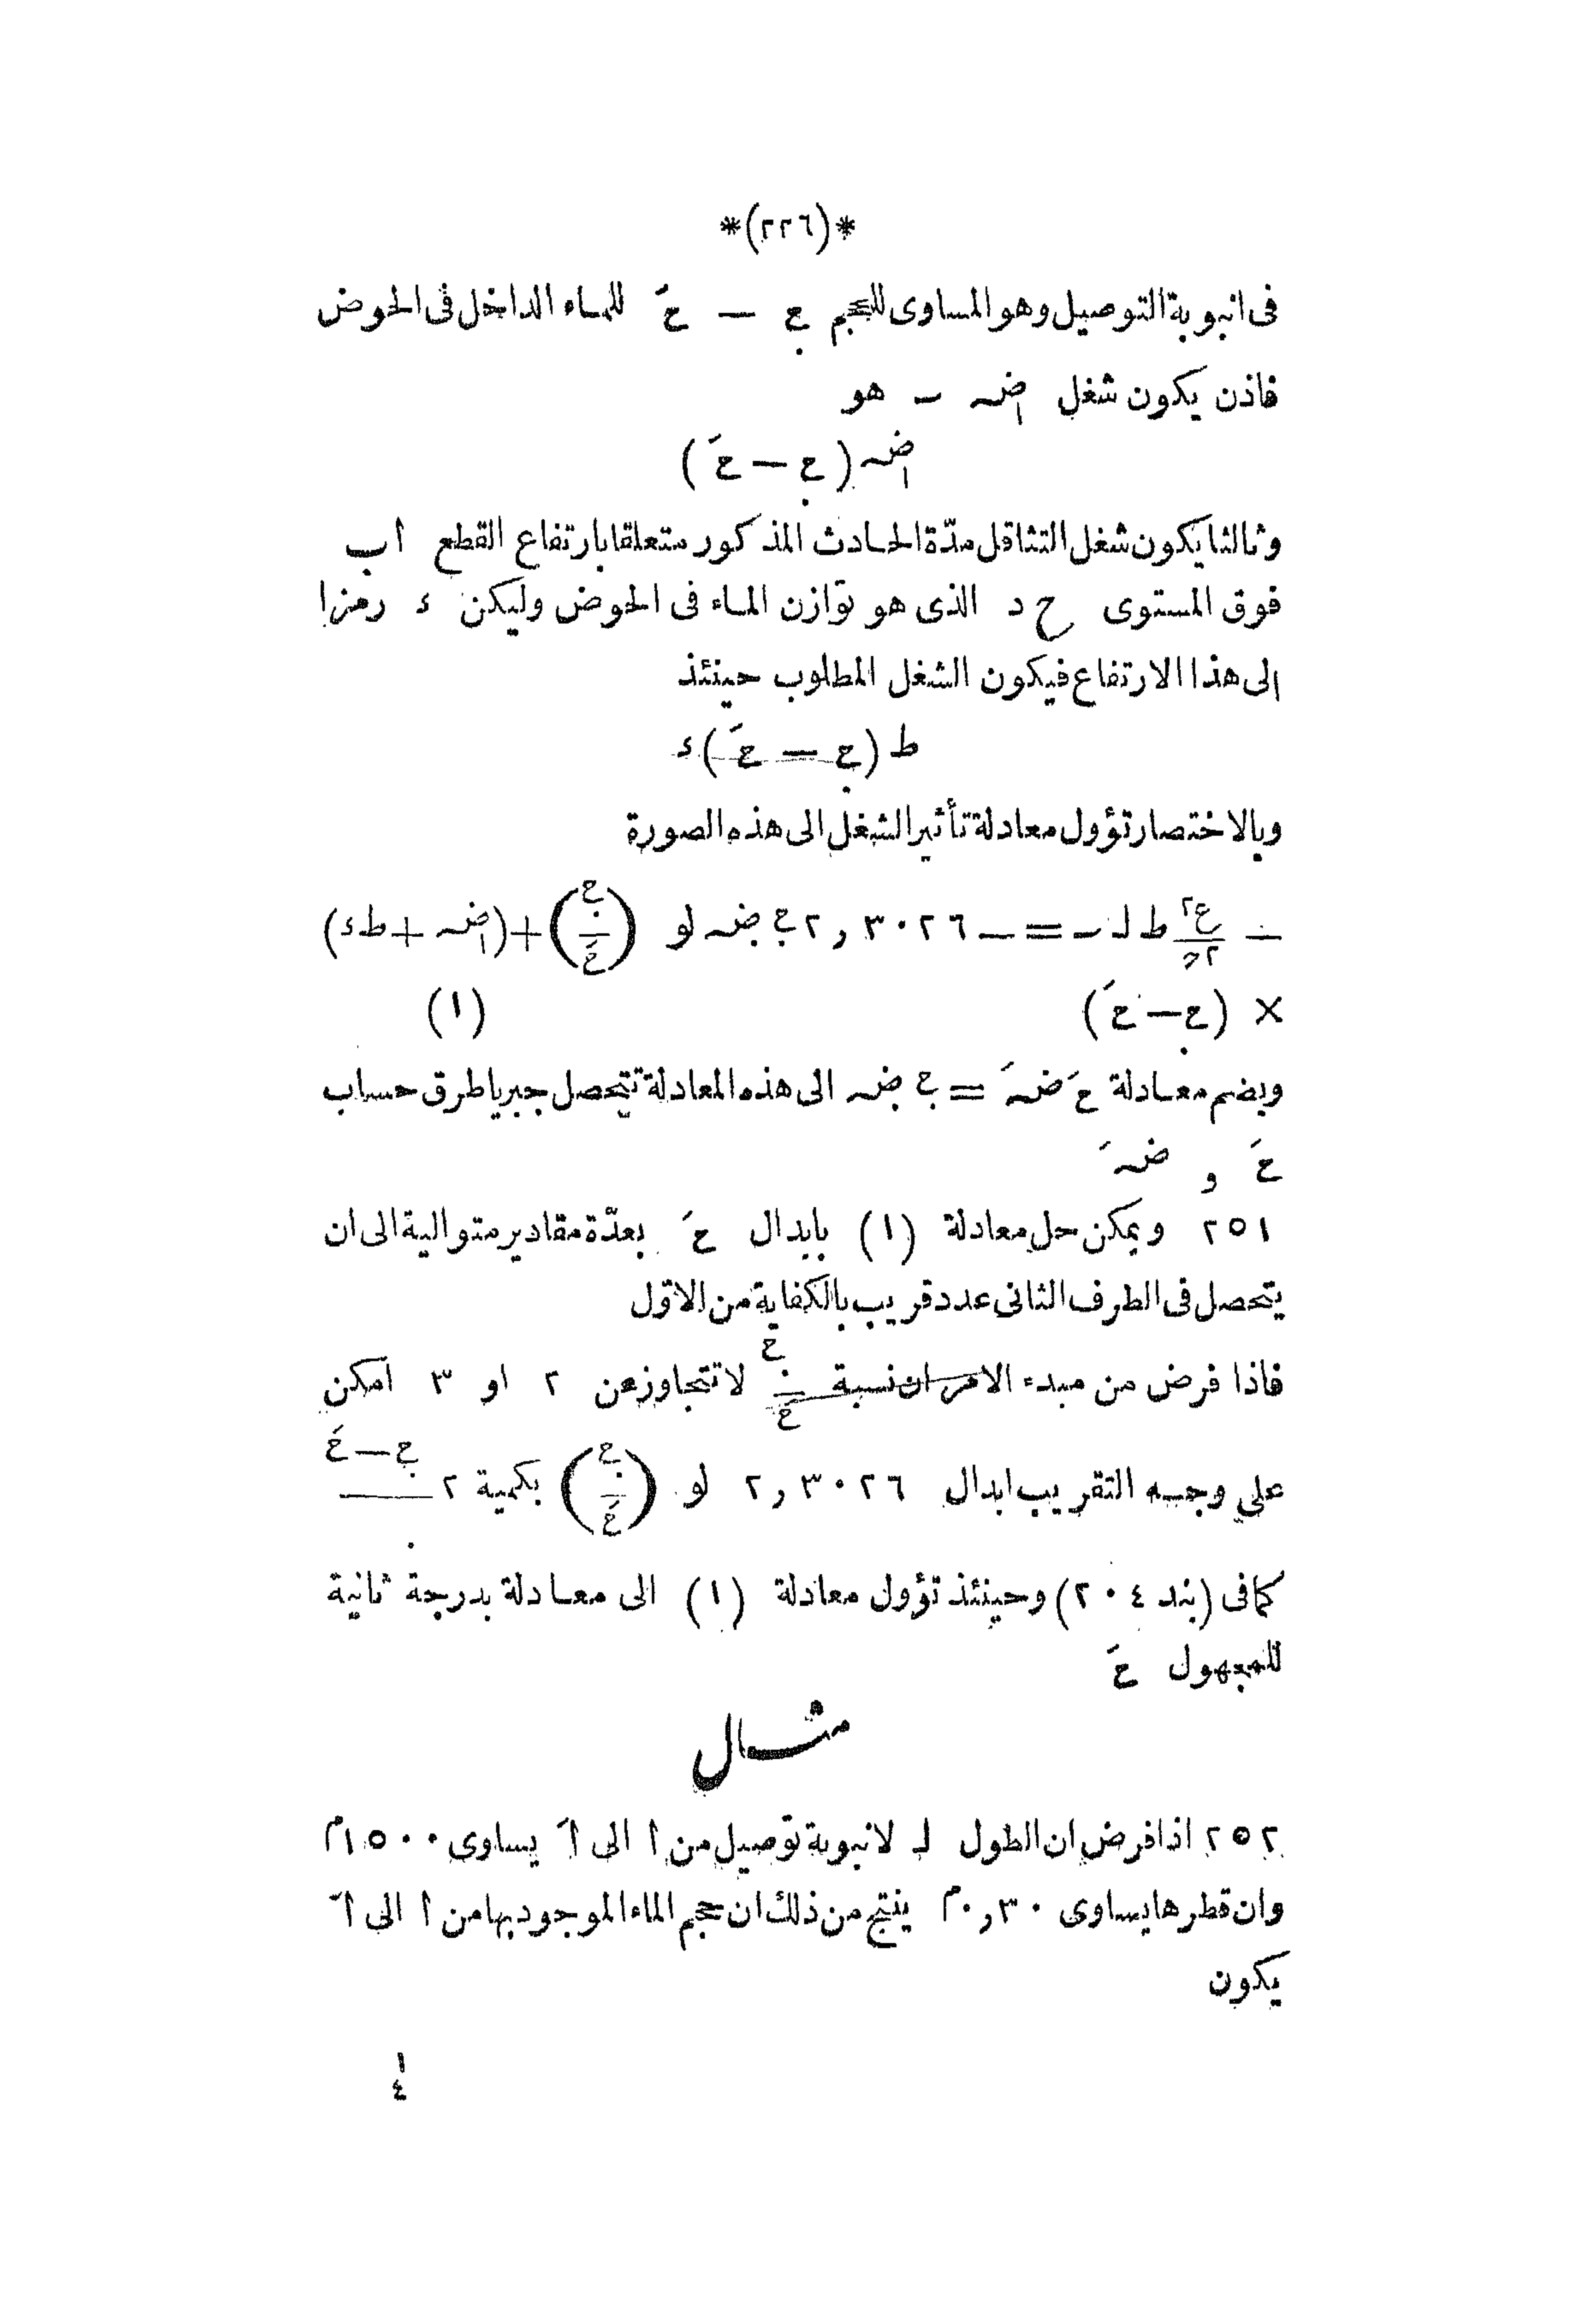 *(٢٢٦)*
فى انبوبة التوصيل وهو المساوى للحجم ح̣ — حَ للماء الداخل فى الحوض
فاذن يكون شغل ضہ₁ ـ هو
ضہ₁ (ح̣ — حَ)
وثالثا يكون شغل التثاقل مدّة الحادث المذكور متعلقا بارتفاع القطع اب
فوق المستوى ح د الذى هو توازن الماء فى الحوض وليكن ء رمزا
الى هذا الارتفاع فيكون الشغل المطلوب حينئذ
ط (ح̣ — حَ) ء
وبالاختصار تؤول معادلة تأثير الشغل الى هذه الصورة
— ع٢/٢ء ط لـ ـ = — ٢,٣٠٢٦ ح̣ ضہ̣ لو (ح̣/حَ) + (ضہ₁ + ط ء)
× (ح̣ — حَ) (١)
وبضم معادلة حَ ضہَ = ح̣ ضہ̣ الى هذه المعادلة تتحصل جبريا طرق حساب
حَ و ضہَ
٢٥١ ويمكن حل معادلة (١) بابدال حَ بعدّة مقادير متوالية الى ان
يتحصل فى الطرف الثانى عدد قريب بالكفاية من الاوّل
فاذا فرض من مبدء الامر ان نسبة ح̣/حَ لا تتجاوز عن ٢ او ٣ امكن
على وجه التقريب ابدال ٢,٣٠٢٦ لو (ح̣/حَ) بكمية ٢ ح̣—حَ
كما فى (بند ٢٠٤) وحينئذ تؤول معادلة (١) الى معادلة بدرجة ثانية
للمجهول حَ
مثال
٢٥٢ اذا فرض ان الطول لـ لانبوبة توصيل من أ الى أَ يساوى ١٥٠٠م
وان قطرها يساوى ٠,٣٠م ينتج من ذلك ان حجم الماء الموجود بها من أ الى أَ
يكون
١
٤